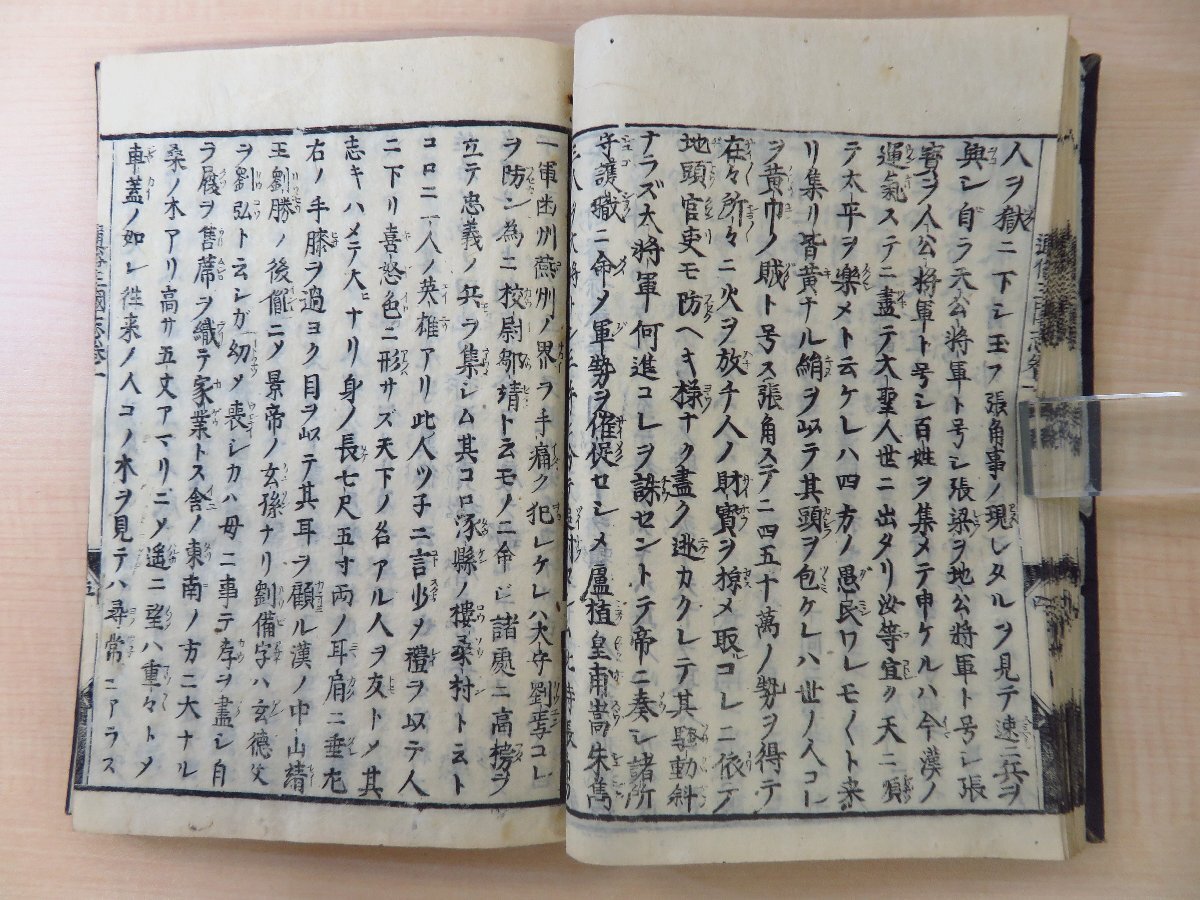 人ヲ獄ニ下シ玉フ張角事ノ現レタルヲ見テ速ニ兵ヲ
興シ自ラ天公將軍ト号シ張梁ヲ地公將軍ト号シ張
宝ヲ人公將軍ト号シ百姓ヲ集メテ申ケルハ今漢ノ
運氣ステニ盡テ大聖人世ニ出タリ汝等宜ク天ニ順
テ太平ヲ樂メト云ケレハ四方ノ愚民ワレモ〳〵ト来
リ集リ皆黄ナル絹ヲ以テ其頭ヲ包ケレハ世ノ人コレ
ヲ黄巾ノ賊ト号ス張角ステニ四五十萬ノ勢ヲ得テ
在々所々ニ火ヲ放チ人ノ財寳ヲ掠メ取コレニ依テ
地頭官吏モ防ヘキ様ナク盡ク逃カクレテ其騒動斜
ナラズ大將軍何進コレヲ誅セントテ帝ニ奏シ諸所
守護職ニ命メ軍勢ヲ催促セシメ盧植皇甫嵩朱雋
一軍幽州燕州ノ界ヲ手痛ク犯シケレハ太守劉焉コレ
ヲ防ン為ニ校尉鄒靖ト云モノニ命ジ諸處ニ高榜ヲ
立テ忠義ノ兵ヲ集シム其コロ涿縣ノ樓桑村ト云ト
コロニ一人ノ英雄アリ此人ツ子ニ言少メ禮ヲ以テ人
ニ下リ喜怒色ニ形サズ天下ノ名アル人ヲ友トメ其
志キハメテ大ナリ身ノ長七尺五寸両ノ耳肩ニ垂左
右ノ手膝ヲ過ヨク目ヲ以テ其耳ヲ顧ル漢ノ中山靖
王劉勝ノ後胤ニメ景帝ノ玄孫ナリ劉備字ハ玄德父
ヲ劉弘ト云シガ幼メ喪シカハ母ニ事テ孝ヲ盡シ自
ラ履ヲ售蓆ヲ織テ家業トス舎ノ東南ノ方ニ大ナル
桑ノ木アリ高サ五丈アマリニメ遥ニ望ハ重々トメ
車蓋ノ如シ徃来ノ人コノ木ヲ見テハ尋常ニアラス